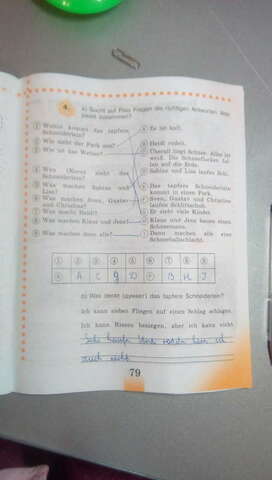 4.
a) Sucht auf Pixis Fragen die richtigen Antworten. Was passt zusammen?
① Wohin kommt das tapfere Schneiderlein?
② Wie sieht der Park aus?
③ Wie ist das Wetter?
④ Wen (Кого) sieht das Schneiderlein?
⑤ Was machen Sabine und Lisa?
⑥ Was machen Sven, Gustav und Christine?
⑦ Was macht Heidi?
⑧ Was machen Klaus und Jens?
⑨ Was machen dann alle?
Es ist kalt.
Heidi rodelt.
Überall liegt Schnee. Alles ist weiß. Die Schneeflocken fallen auf die Erde.
Sabine und Lisa laufen Schi.
Das tapfere Schneiderlein kommt in einen Park.
Sven, Gustav und Christine laufen Schlittschuh.
Er sieht viele Kinder.
Klaus und Jens bauen einen Schneemann.
Dann machen alle eine Schneeballschlacht.
① ② ③ ④ ⑤ ⑥ ⑦ ⑧ ⑨
A C g D B H J
b) Was denkt (думает) das tapfere Schneiderlein?
Ich kann sieben Fliegen auf einen Schlag schlagen.
Ich kann Riesen besiegen, aber ich kann nicht
79